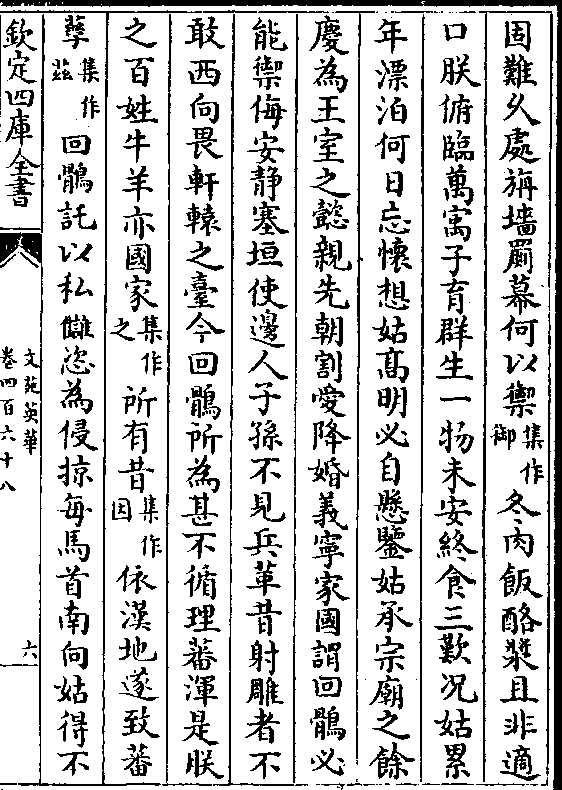 固難久處旃墻罽幕何以禦集作御冬肉飯酪漿且非適
口朕俯臨萬㝢子育群生一物未安終食三歎况姑累
年漂泊何日忘懷想姑髙明必自懸鑒姑承宗廟之餘
慶為王室之懿親先朝割愛降婚義寧家國謂回鶻必
能禦侮安靜塞垣使邊人子孫不見兵革昔射雕者不
敢西向畏軒轅之臺今回鶻所為甚不循理蕃渾是朕
之百姓牛羊亦國家集作之所有昔集作因依漢地遂致蕃
孳集作兹回鶻託以私讎恣為侵掠每馬首南向姑得不
欽定四庫全書
文苑英華
卷四百六十八
六